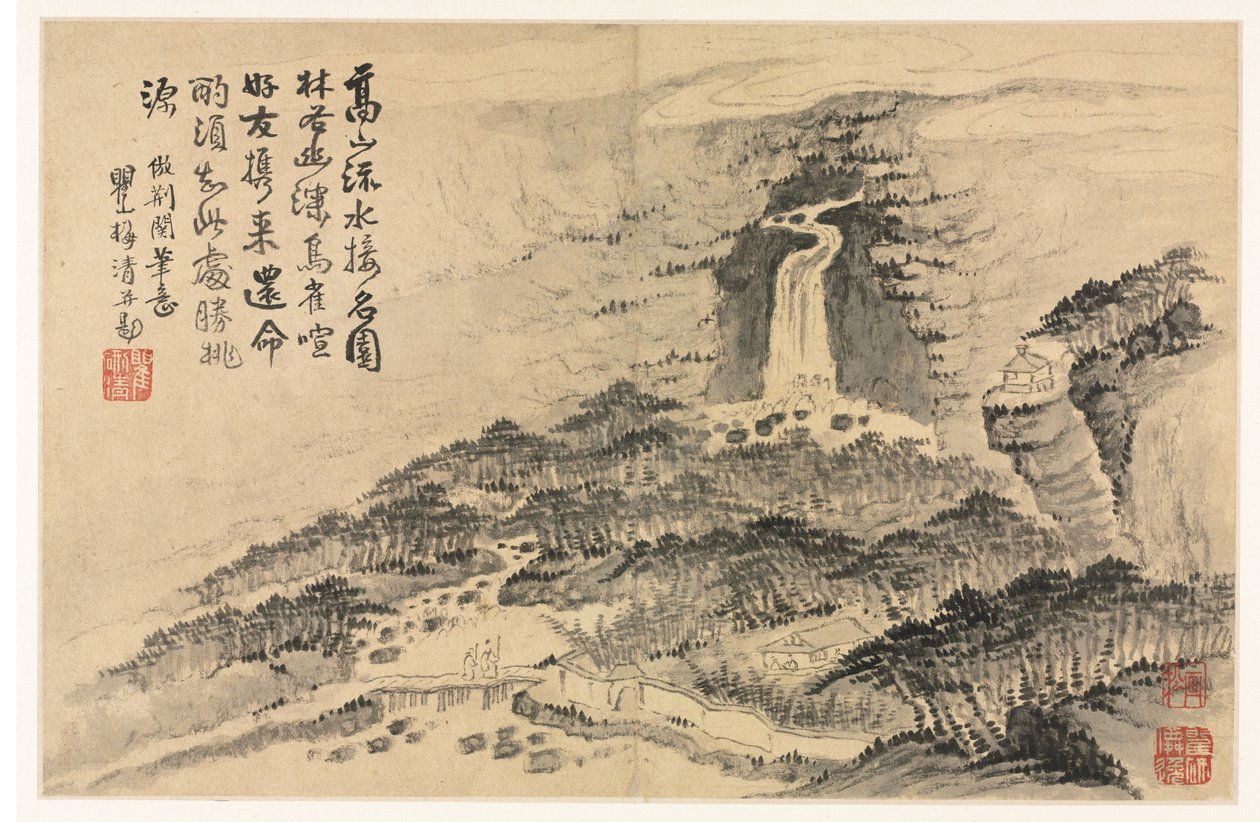 高山流水接名園
林谷幽深鳥雀喧
好友攜来還命
酌須知此處勝桃
源
倣荊関筆意
瞿山梅清并題